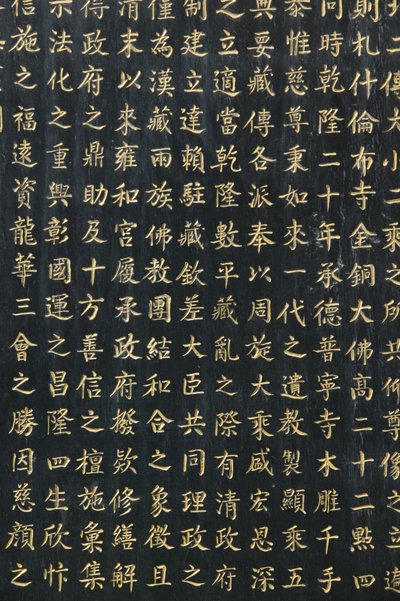 二傳大小二乘之所共仰尊像之立適
則札什倫布寺金銅大佛高二十二點四
時乾隆二十年承德普寧寺木雕千手
泰惟慈尊秉如來一代之遺教製顯乘五
典要藏傳各派奉以周旋大乘咸宏恩深
之立適當乾隆數平藏亂之際有清政府
制建立達賴駐藏欽差大臣共同理政之
僅為漢藏兩族佛教團結和合之象徵且
清末以來雍和宮屢承政府撥款修繕解
得政府之鼎助及十方善信之檀施彙集
示法化之重興彰國運之昌隆四生欣忭
信施之福遠資龍華三會之勝因慈顏之